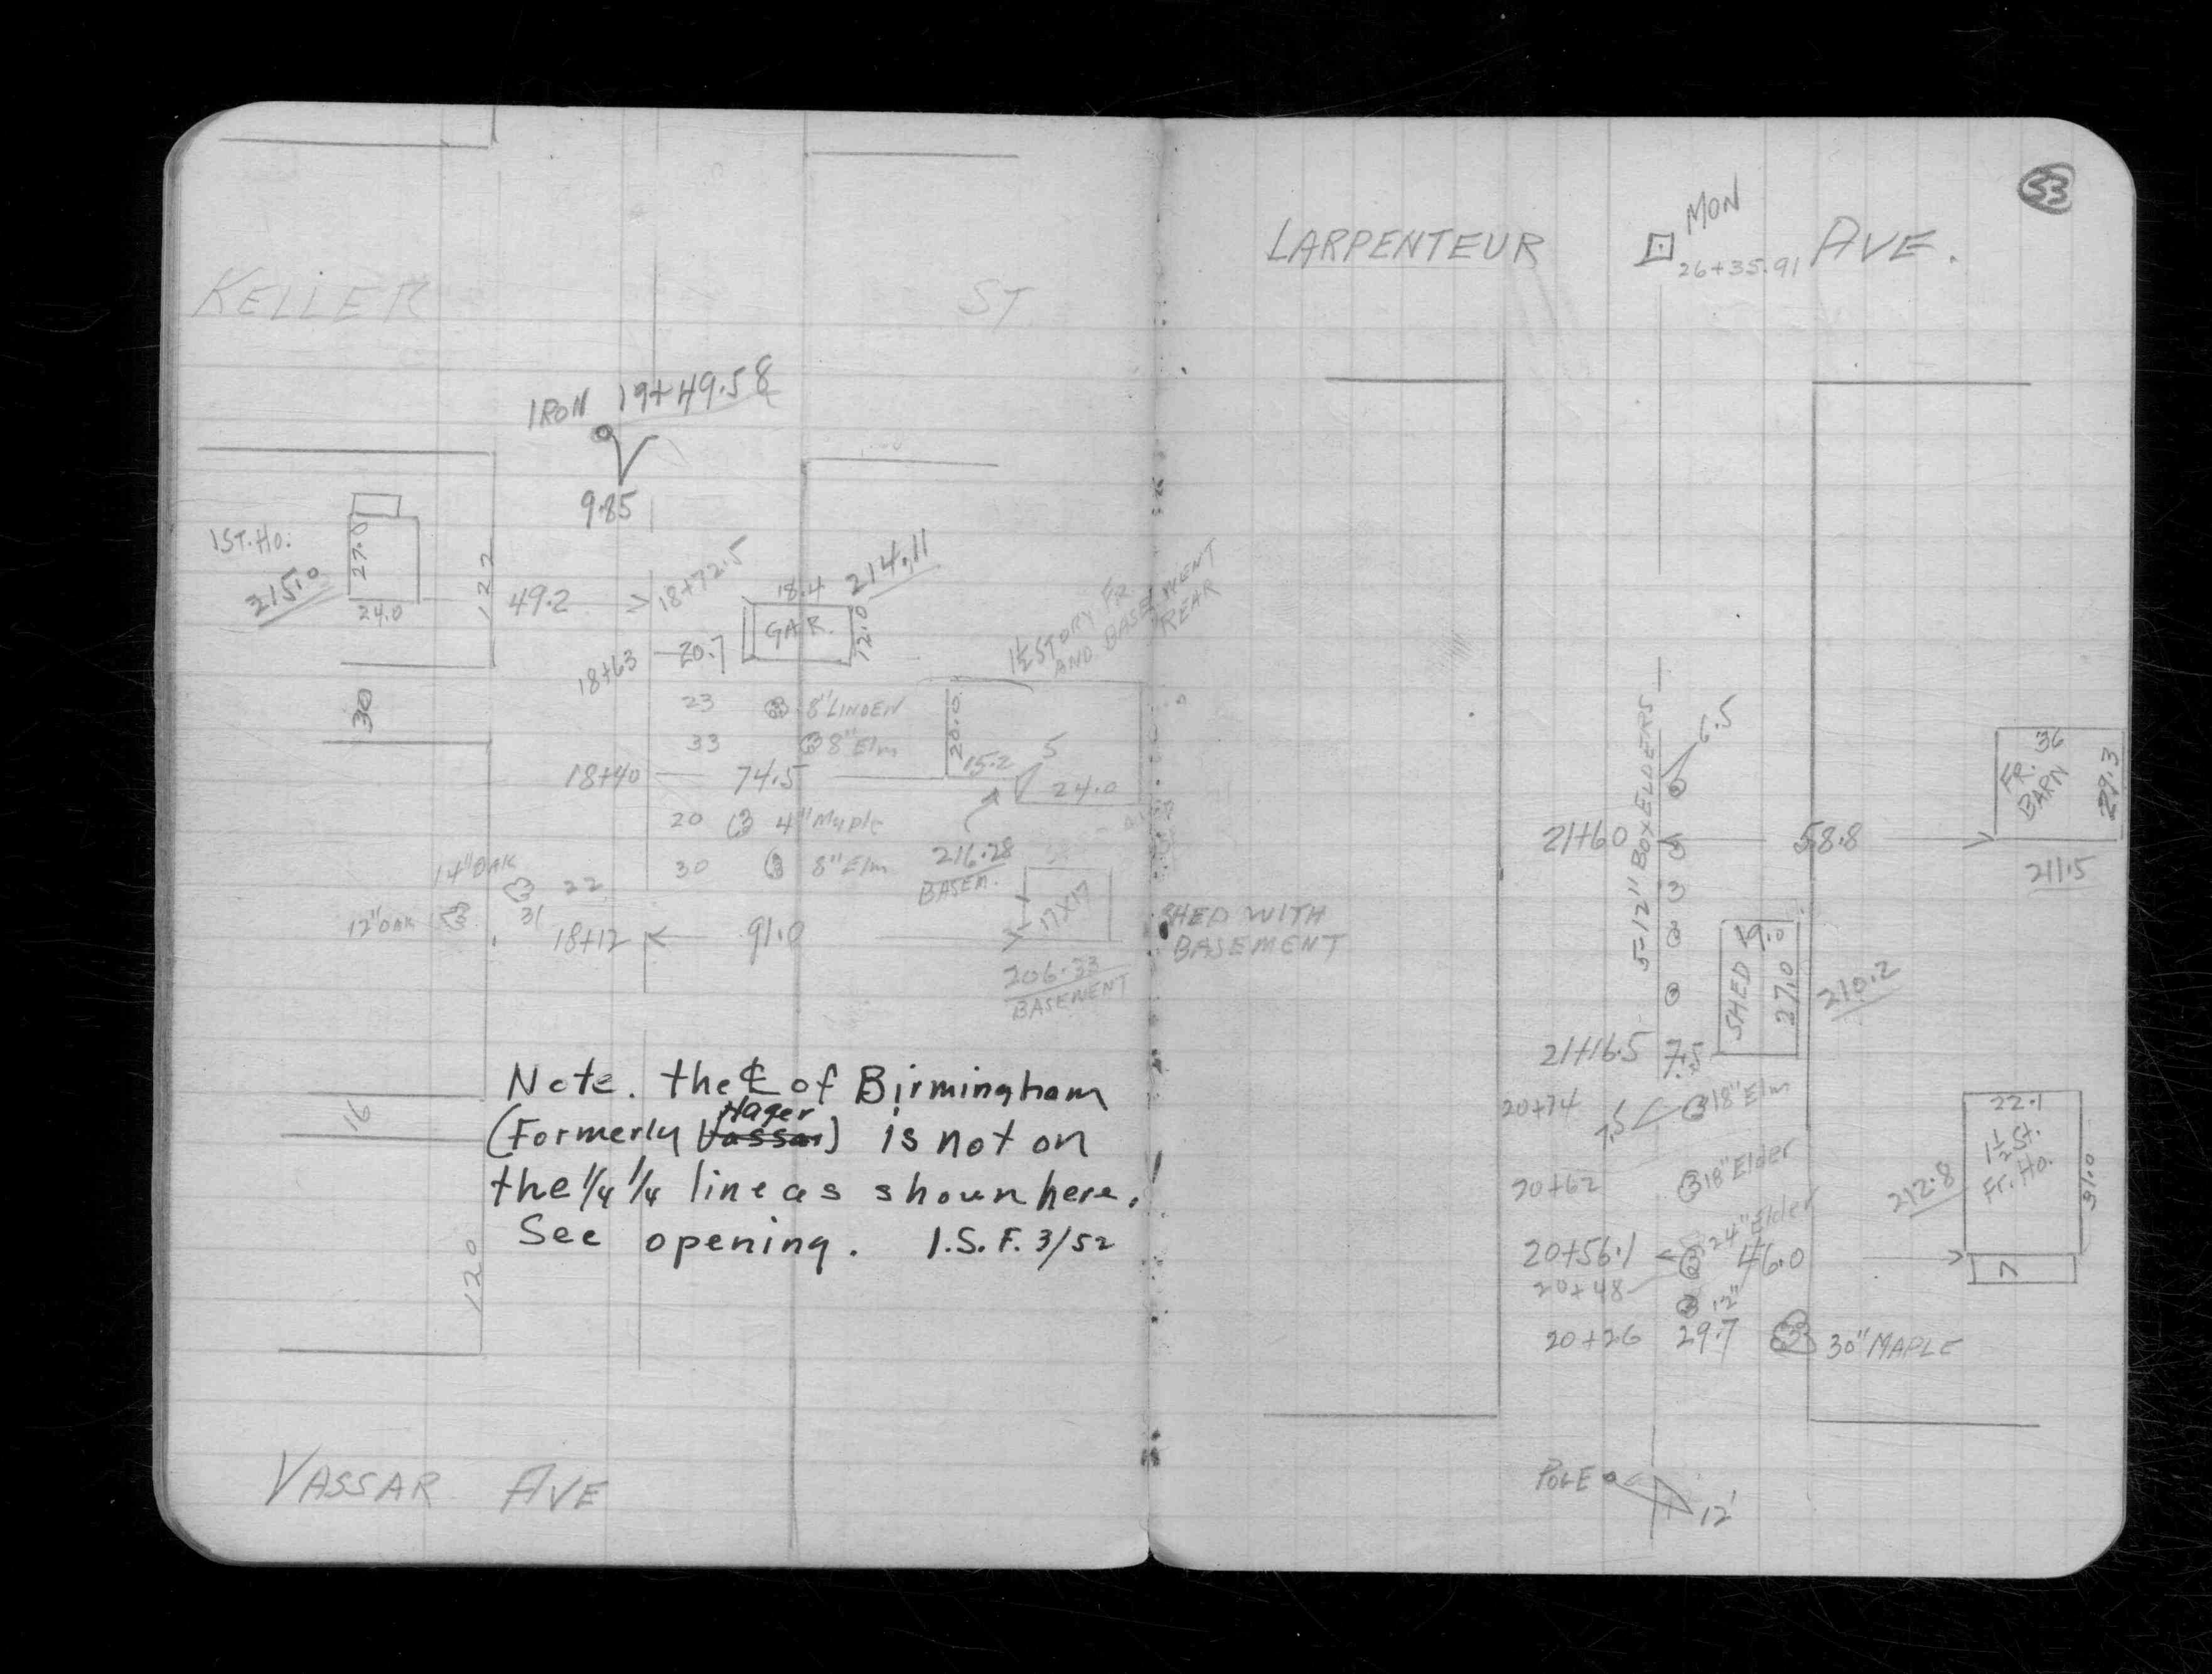 KELLER ST
IRON 19+49.58
9.85
1 ST. HO.
215.0
27.0
24.0
122
49.2
18+72.5
18.4
214.11
GAR.
12.0
18+63
20.7
1½ STORY FR.
AND BASEMENT
REAR
30
23 8" LINDEN
33 8" Elm
20.0
15.2
5
24.0
18+40 74.5
20 4" Maple
30 8" Elm
216.28
BASEM.
14" OAK
22
12" OAK
31
18+12 91.0
17X17
206.33
BASEMENT
SHED WITH
BASEMENT
16
Note. the ℄ of Birmingham
Hager
(Formerly Vassar) is not on
the 1/4 1/4 line as shown here.
See opening. I.S.F. 3/52
120
VASSAR AVE
53
MON
LARPENTEUR AVE.
26+35.91
5-12" BOXELDERS
6.5
FR.
BARN
36
29.3
21+60 58.8
211.5
SHED
19.0
27.0
210.2
21+16.5 7.5
20+74 7.5 18" Elm
22.1
1½ St.
Fr. Ho.
31.0
212.8
20+62 18" Elder
24" Elder
20+56.1 46.0
7
20+48
12"
20+26 29.7 30" MAPLE
POLE
12'